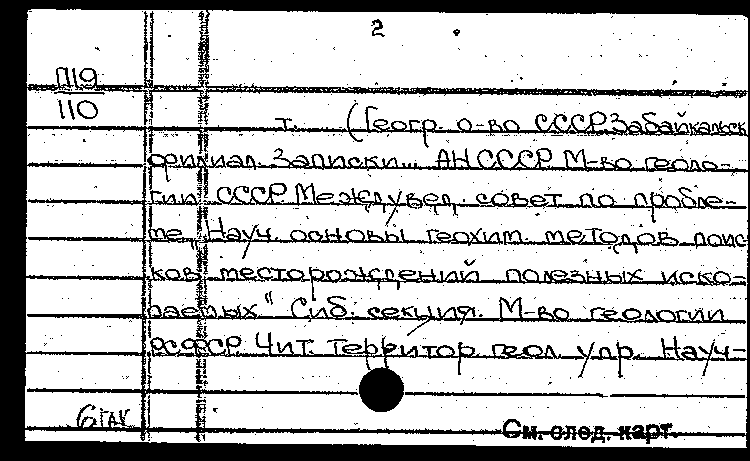 2
П119
110
т. (Геогр. о-во СССР. Забайкальск
филиал. Записки... АН СССР М-во геоло-
гии СССР Междувед. совет по пробле-
ме „Науч. основы геохим. методов поис
ков месторождений полезных иско-
паемых" Сиб. секция. М-во геологии
РСФСР. Чит. территор геол. упр. Науч-
См. след. карт.